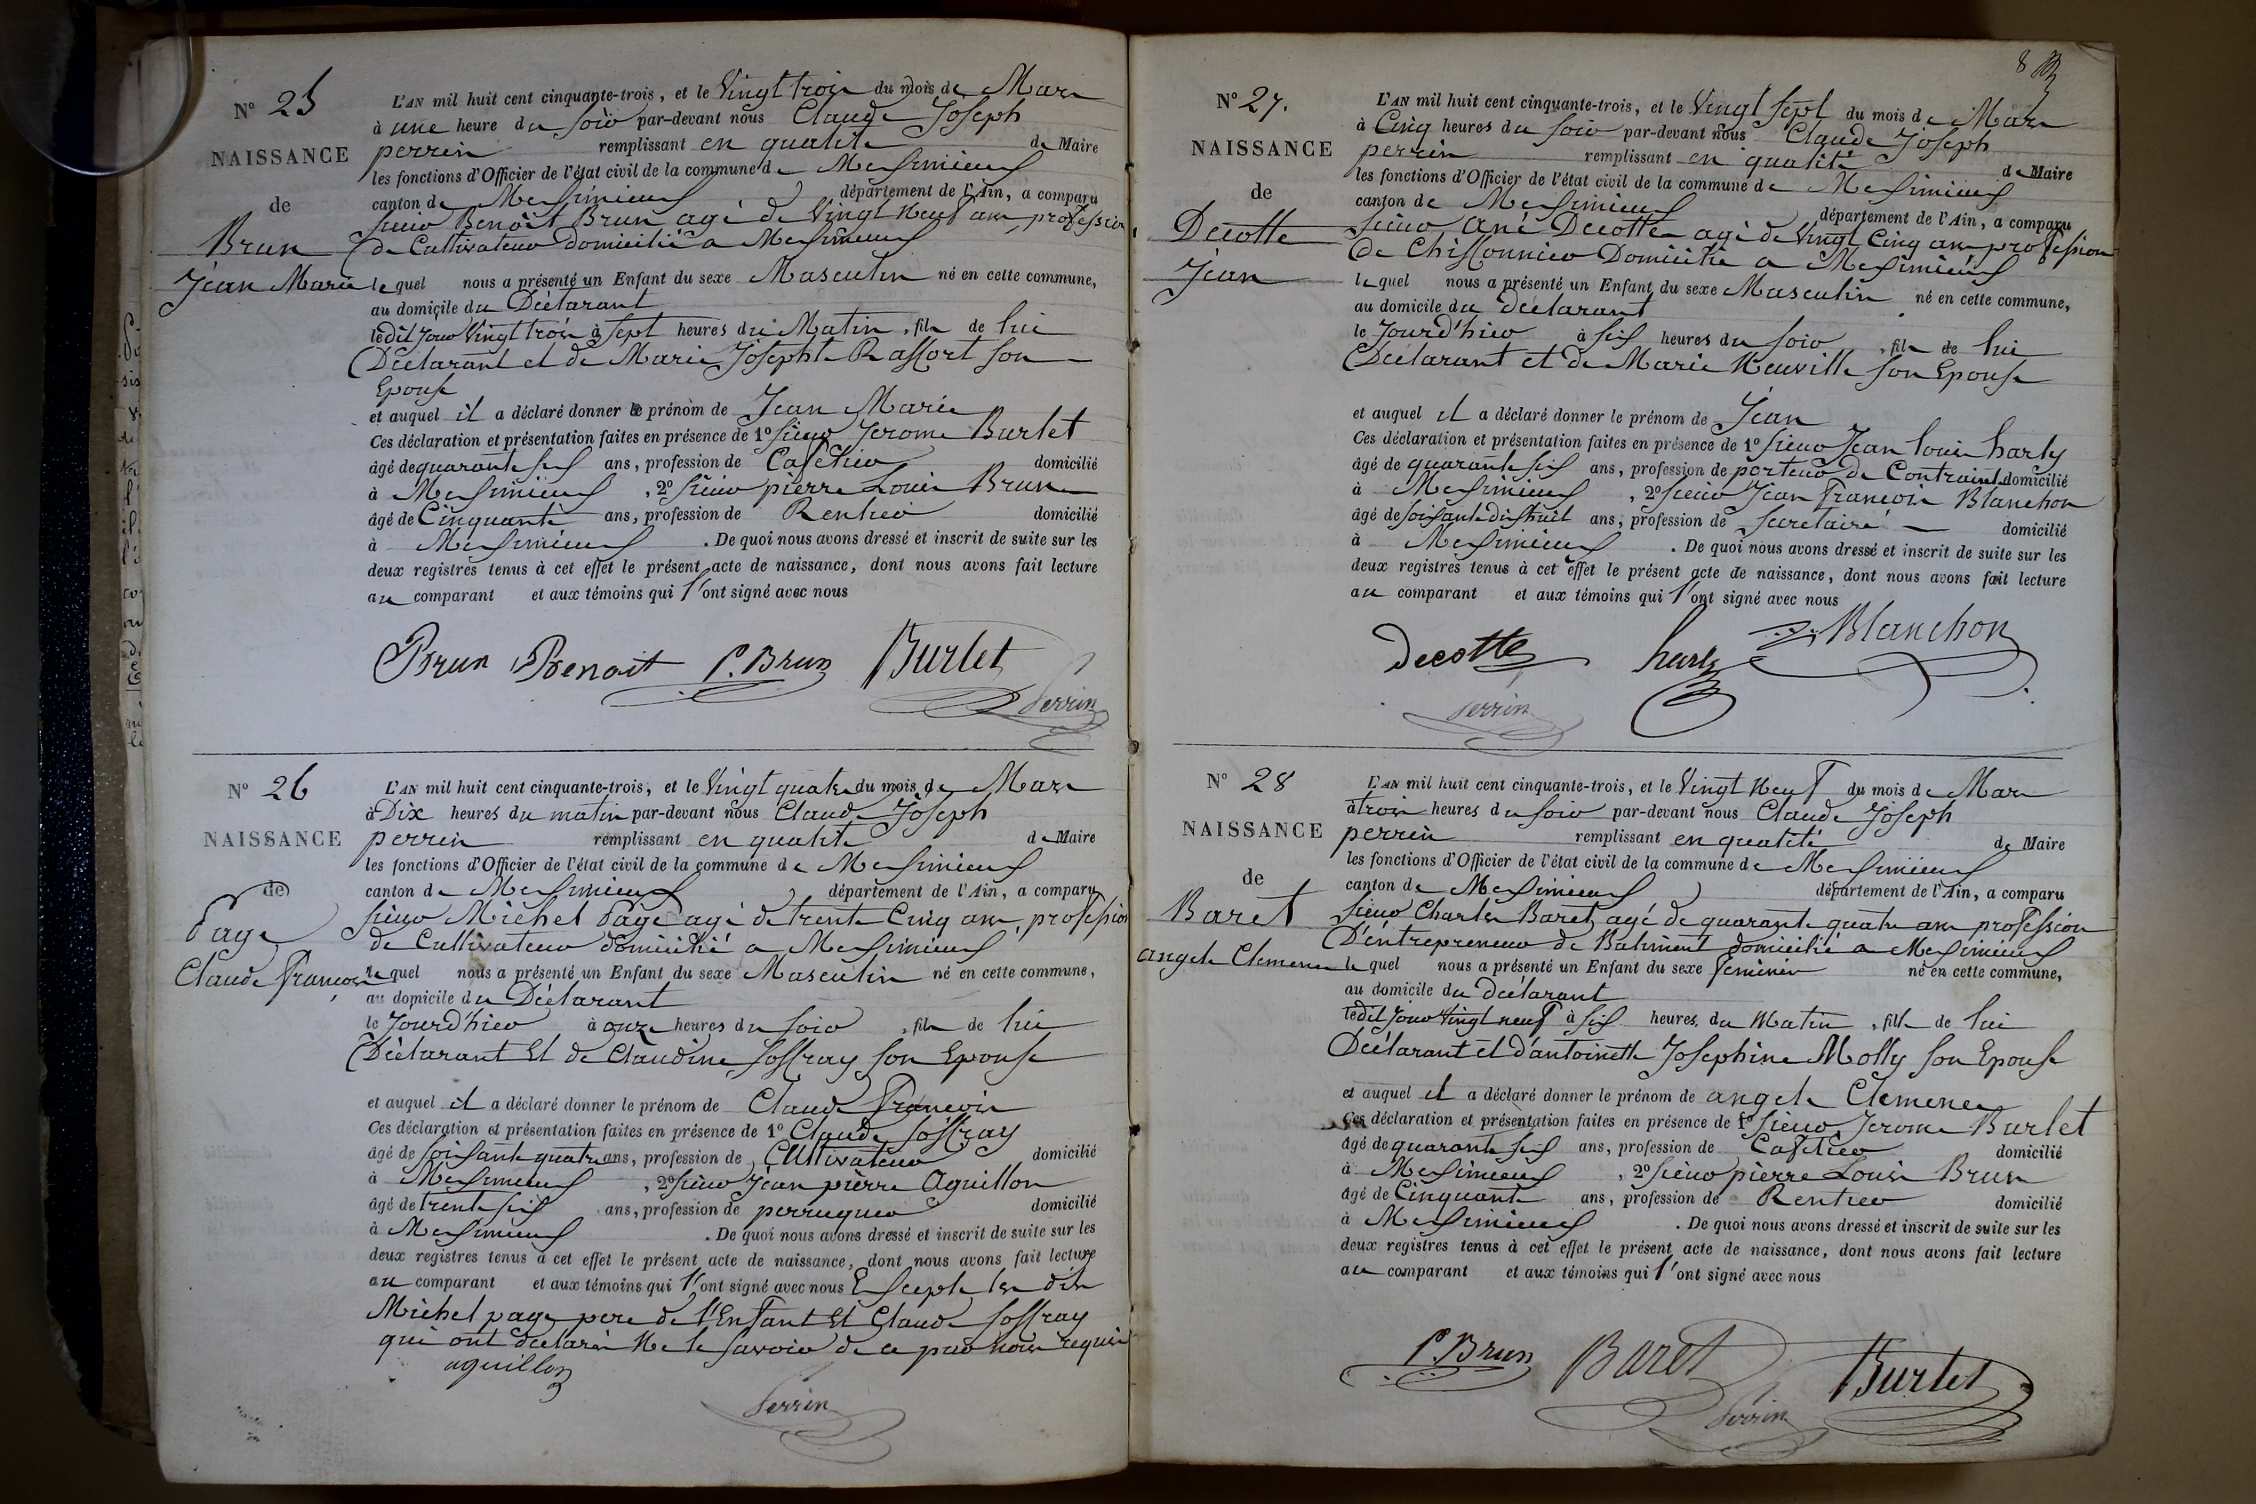 Nº 25
NAISSANCE
de
Brun
Jean Marie
L'AN mil huit cent cinquante-trois, et le Vingt trois du mois de Mars
à une heure du soir par-devant nous Claude Joseph
perrin remplissant en qualité de Maire
les fonctions d'Officier de l'état civil de la commune de Meximieux
canton de Meximieux département de l'Ain, a comparu
sieur Benoît Brun agé de Vingt neuf ans, profession
de Cultivateur domicilié a Meximieux
lequel nous a présenté un Enfant du sexe Masculin né en cette commune,
au domicile du Déclarant
ledit jour Vingt trois à sept heures du Matin, fils de lui
Déclarant et de Marie Josephte Raffort son
Epouse
et auquel il a déclaré donner le prénom de Jean Marie
Ces déclaration et présentation faites en présence de 1º sieur Jerome Burlet
âgé de quarante six ans, profession de Cafetier domicilié
à Meximieux, 2º sieur pierre Louis Brun
âgé de Cinquante ans, profession de Rentier domicilié
à Meximieux. De quoi nous avons dressé et inscrit de suite sur les
deux registres tenus à cet effet le présent acte de naissance, dont nous avons fait lecture
au comparant et aux témoins qui l'ont signé avec nous
Brun Benoit P. Brun Burlet
Perrin
Nº 26
NAISSANCE
de
Page
Claude François
L'AN mil huit cent cinquante-trois, et le Vingt quatre du mois de Mars
à Dix heures du matin par-devant nous Claude Joseph
perrin remplissant en qualité de Maire
les fonctions d'Officier de l'état civil de la commune de Meximieux
canton de Meximieux département de l'Ain, a comparu
sieur Michel Page agé de trente Cinq ans, profession
de Cultivateur domicilié a Meximieux
lequel nous a présenté un Enfant du sexe Masculin né en cette commune,
au domicile du Déclarant
le Jourd'hier à onze heures du soir, fils de lui
Déclarant Et de Claudine Joffray son Epouse
et auquel il a déclaré donner le prénom de Claude François
Ces déclaration et présentation faites en présence de 1º Claude Joffray
âgé de soixante quatre ans, profession de Cultivateur domicilié
à Meximieux, 2º sieur Jean pierre Aguillon
âgé de trente six ans, profession de perruquier domicilié
à Meximieux. De quoi nous avons dressé et inscrit de suite sur les
deux registres tenus à cet effet le présent acte de naissance, dont nous avons fait lecture
au comparant et aux témoins qui l'ont signé avec nous Excepté les dits
Michel page pere de l'Enfant Et Claude Joffray
qui ont declarés Ne le savoir de ce par nous requis
aguillon
Perrin
8
Nº 27.
NAISSANCE
de
Decotte
Jean
L'AN mil huit cent cinquante-trois, et le Vingt sept du mois de Mars
à Cinq heures du soir par-devant nous Claude Joseph
perrin remplissant en qualité de Maire
les fonctions d'Officier de l'état civil de la commune de Meximieux
canton de Meximieux département de l'Ain, a comparu
sieur Ané Decotte agé de Vingt Cinq ans profession
de Chiffonnier Domicilié a Meximieux
lequel nous a présenté un Enfant du sexe Masculin né en cette commune,
au domicile du déclarant
le Jourd'hier à six heures du soir, fils de lui
Déclarant et de Marie Neuville son Epouse
et auquel il a déclaré donner le prénom de Jean
Ces déclaration et présentation faites en présence de 1º sieur Jean louis harly
âgé de quarante six ans, profession de porteur de Contraint domicilié
à Meximieux, 2º sieur Jean François Blanchon
âgé de soixante dix huit ans, profession de secretaire domicilié
à Meximieux. De quoi nous avons dressé et inscrit de suite sur les
deux registres tenus à cet effet le présent acte de naissance, dont nous avons fait lecture
au comparant et aux témoins qui l'ont signé avec nous
decotte harly Blanchon
Perrin
Nº 28
NAISSANCE
de
Baret
angele Clemence
L'AN mil huit cent cinquante-trois, et le Vingt Neuf du mois de Mars
à trois heures du soir par-devant nous Claude Joseph
perrin remplissant en qualité de Maire
les fonctions d'Officier de l'état civil de la commune de Meximieux
canton de Meximieux département de l'Ain, a comparu
sieur Charles Baret agé de quarante quatre ans profession
D'entrepreneur de Batiment domicilié a Meximieux
lequel nous a présenté un Enfant du sexe feminin né en cette commune,
au domicile du déclarant
ledit jour Vingt neuf à six heures du Matin, fille de lui
Déclarant et d'antoinette Josephine Molly son Epouse
et auquel il a déclaré donner le prénom de angele Clemence
Ces déclaration et présentation faites en présence de 1º sieur Jerome Burlet
âgé de quarante six ans, profession de Cafetier domicilié
à Meximieux, 2º sieur pierre Louis Brun
âgé de Cinquante ans, profession de Rentier domicilié
à Meximieux. De quoi nous avons dressé et inscrit de suite sur les
deux registres tenus à cet effet le présent acte de naissance, dont nous avons fait lecture
au comparant et aux témoins qui l'ont signé avec nous
P. Brun Baret Burlet
Perrin